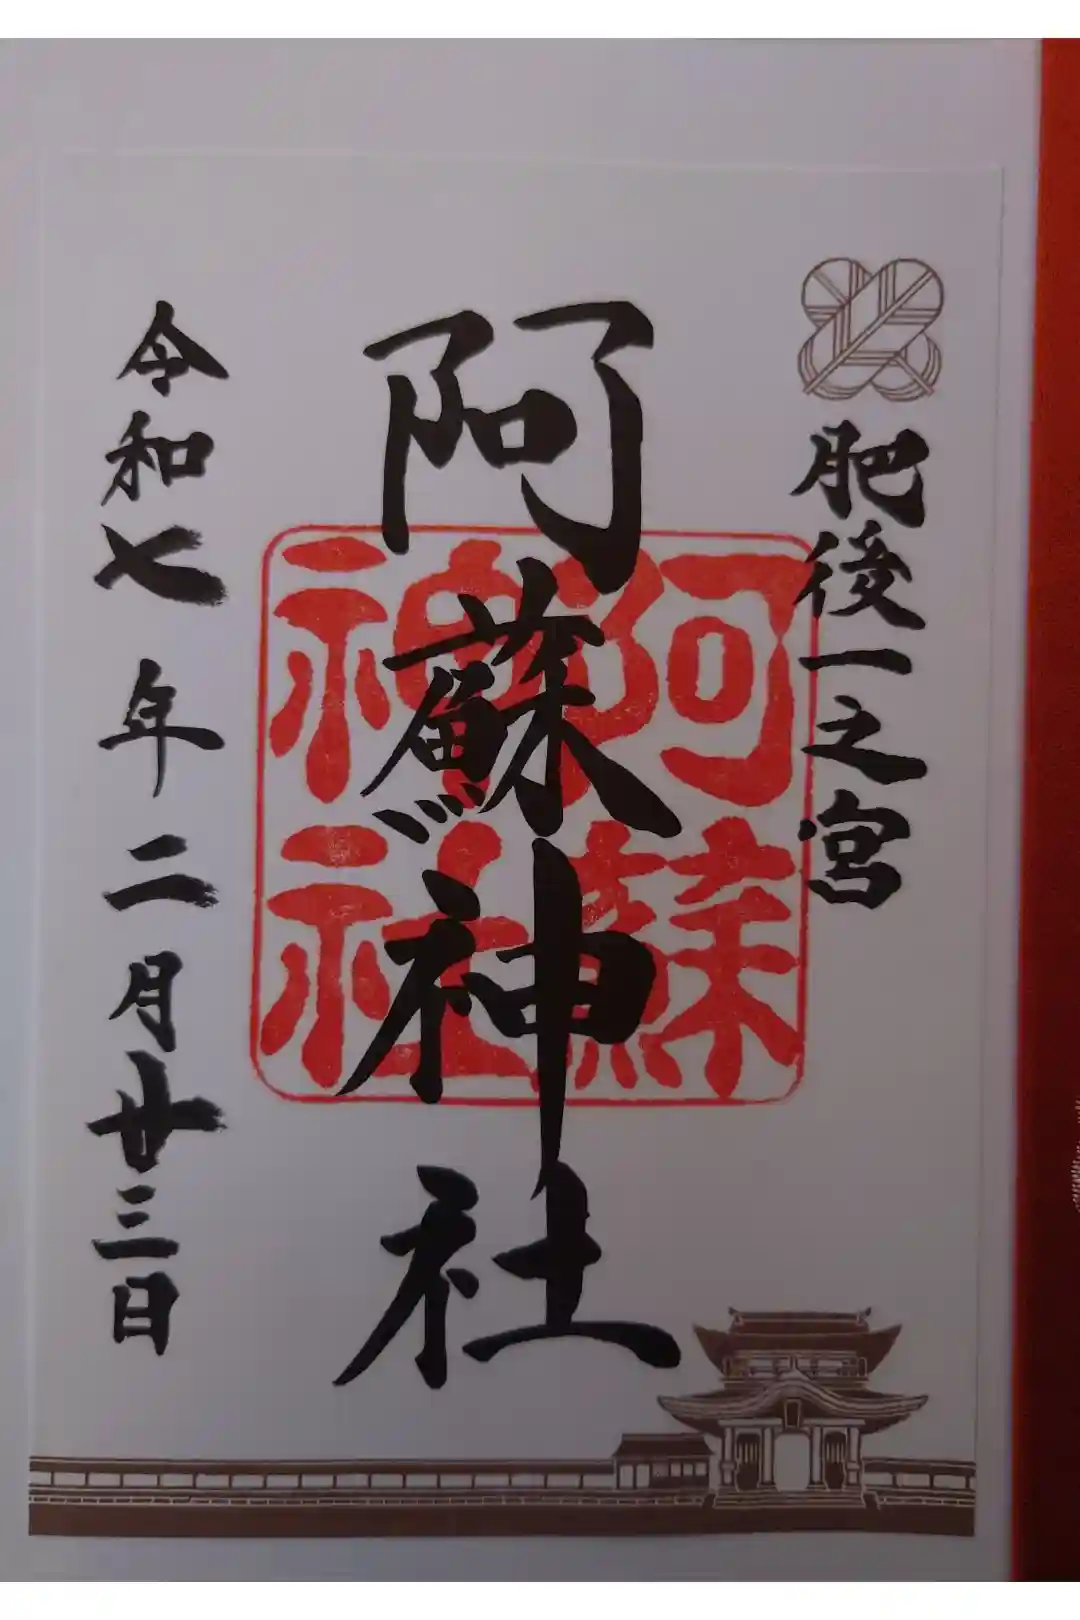 肥後一之宮
阿蘇神社
阿蘇神社
令和七年二月廿三日